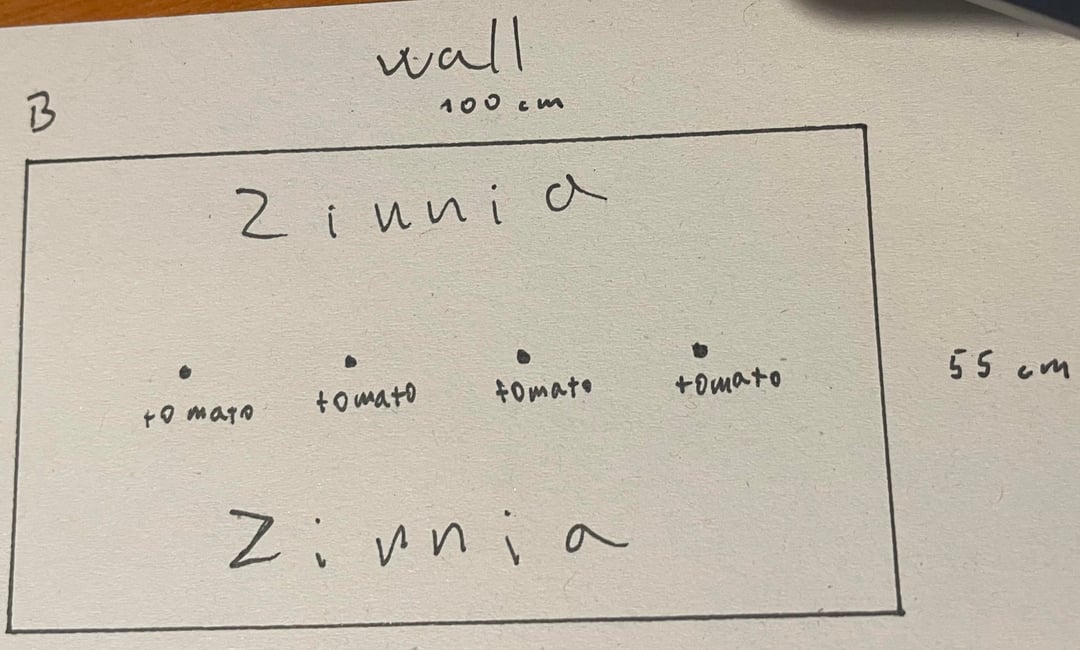 wall
100 cm
B
Zinnia
tomato tomato tomato tomato
55 cm
Zinnia